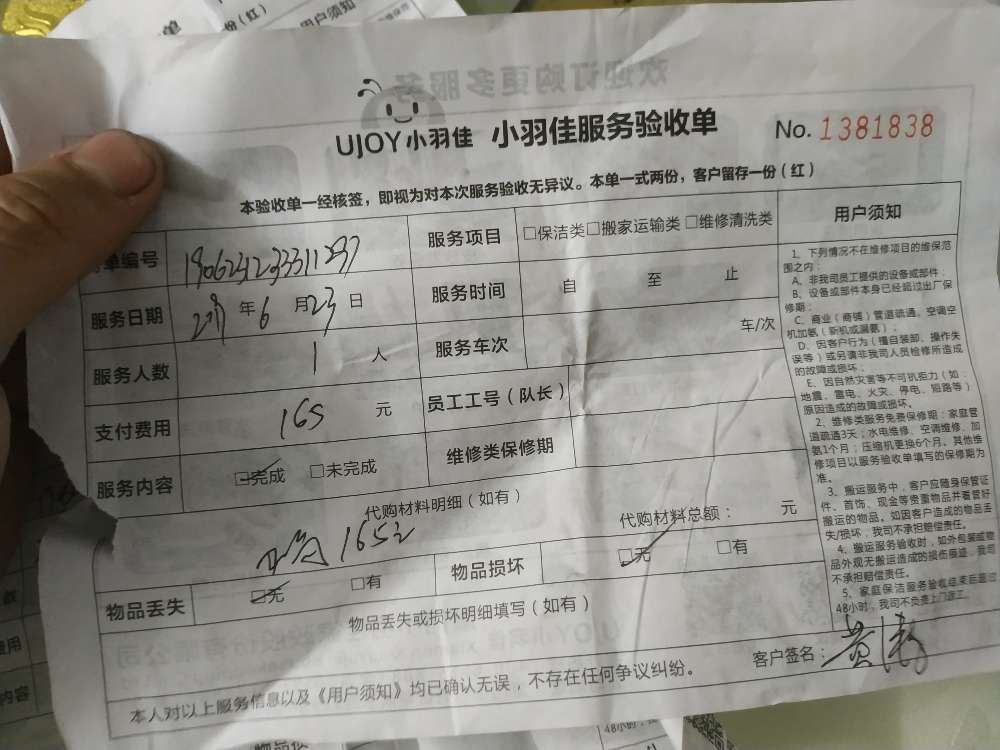 UJOY小羽佳 小羽佳服务验收单 No. 1381838
本验收单一经核签，即视为对本次服务验收无异议。本单一式两份，客户留存一份（红）
单编号
服务项目 □保洁类□搬家运输类□维修清洗类
服务日期 年 6 月 23 日
服务时间 自 至 止
服务人数 1 人
服务车次 车/次
支付费用 165 元
员工工号（队长）
服务内容 □完成 □未完成
维修类保修期
代购材料明细（如有）
165元
代购材料总额： 元
物品丢失 □无 □有
物品损坏 □无 □有
物品丢失或损坏明细填写（如有）
本人对以上服务信息以及《用户须知》均已确认无误，不存在任何争议纠纷。
客户签名：
用户须知
1、下列情况不在维修项目的维保范
围之内：
A、非我司员工提供的设备或部件；
B、设备或部件本身已经超过出厂保
修期；
C、商业（商铺）管道疏通、空调空
机加氨（新机或漏氨）；
D、因客户行为（擅自装卸、操作失
误等）或另请非我司人员检修所造成
的故障或损坏；
E、因自然灾害等不可抗拒力（如：
地震、雷电、火灾、停电、短路等）
原因造成的故障或损坏。
2、维修类服务免费保修期：家庭管
道疏通3天；水电维修、空调维修、加
氨1个月；压缩机更换6个月。其他维
修项目以服务验收单填写的保修期为
准。
3、搬运服务中，客户应随身保管证
件、首饰、现金等贵重物品并看管好
搬运的物品。如因客户造成的物品丢
失/损坏，我司不承担赔偿责任。
4、搬运服务验收时，如外包装或物
品外观无搬运造成的损伤痕迹，我司
不承担赔偿责任。
5、家庭保洁服务验收结束后超过
48小时，我司不负责上门返工。